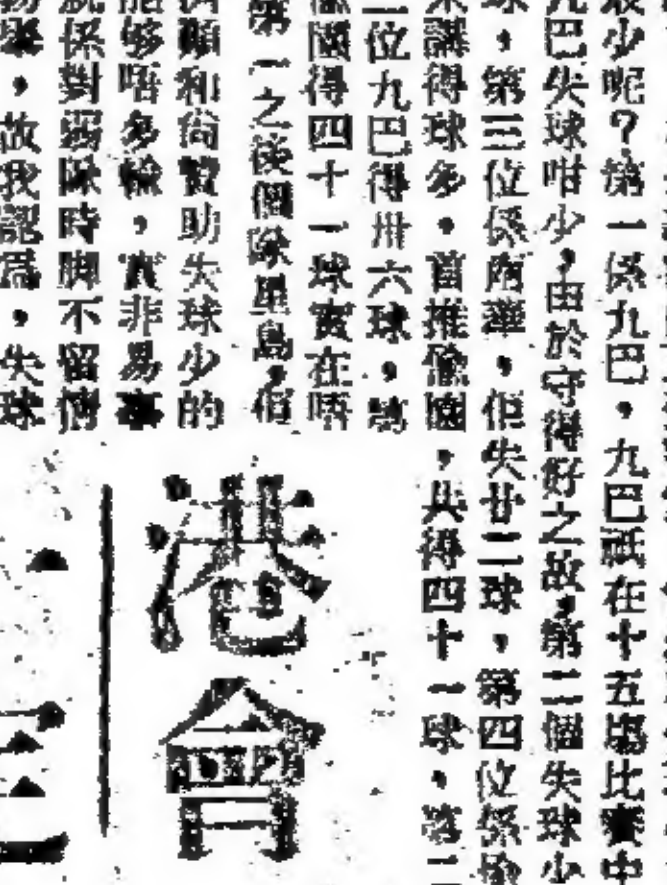 少呢？第一係九巴，九巴祇在十五塲比賽中
九巴失球咁少，由於守得好之故，第二個失球少
球，第三位係南華，佢失廿二球，第四位係愉
得球多，首推愉園，共得四十一球，第二
二位九巴得卅六球，
園得四十一球實在唔
第一之後個隊星島，佢
和尚贊助失球少的
能够唔多輸，實非易事
就係對弱隊時脚不留情
，故我認爲，失球
港會